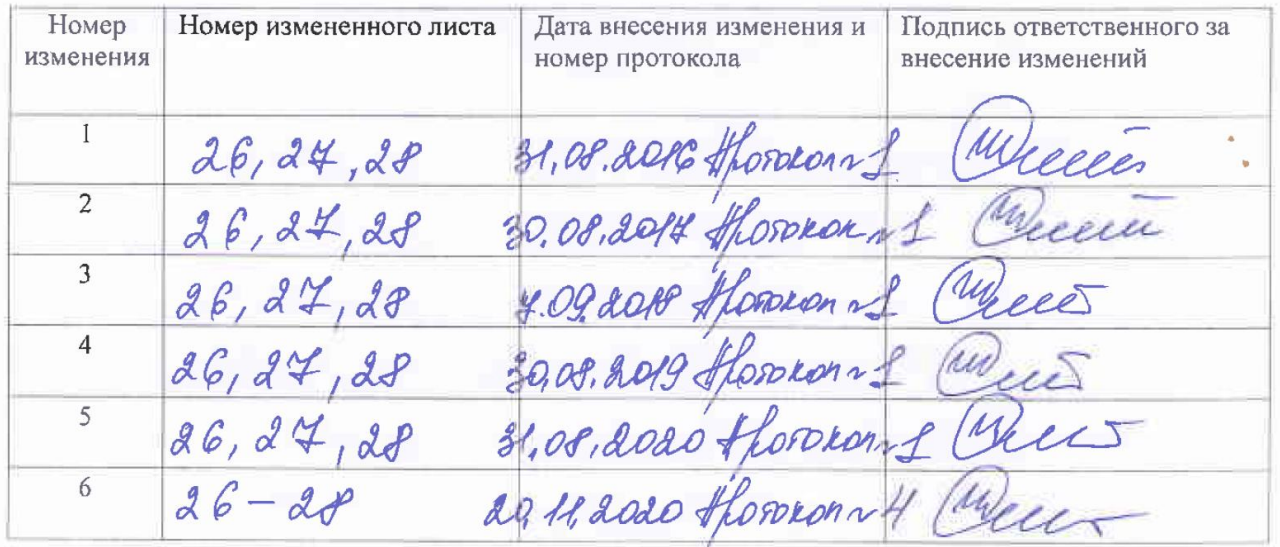 Номер изменения Номер измененного листа Дата внесения изменения и номер протокола Подпись ответственного за внесение изменений
1 26, 27, 28 31.08.2016 Протокол №1
2 26, 27, 28 30.08.2017 Протокол №1
3 26, 27, 28 7.09.2018 Протокол №1
4 26, 27, 28 30.08.2019 Протокол №1
5 26, 27, 28 31.08.2020 Протокол №1
6 26-28 20.11.2020 Протокол №4